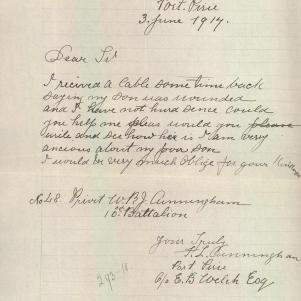 Port. Pirie
3. June 1917.
Dear Sir
I recived a Cable some time back
saying my son was wounded
and I have not hurd sence could
you help me pleas would you please
write and see how hee is I am very
ancious abort my poor son
I would be very much Oblige for your Kindness
No 48 Privit W. B. J. Cunningham
10th Battalion
Your Truly
F. L. Cunningham
Port Pirie
C/o E. B Welch Esq